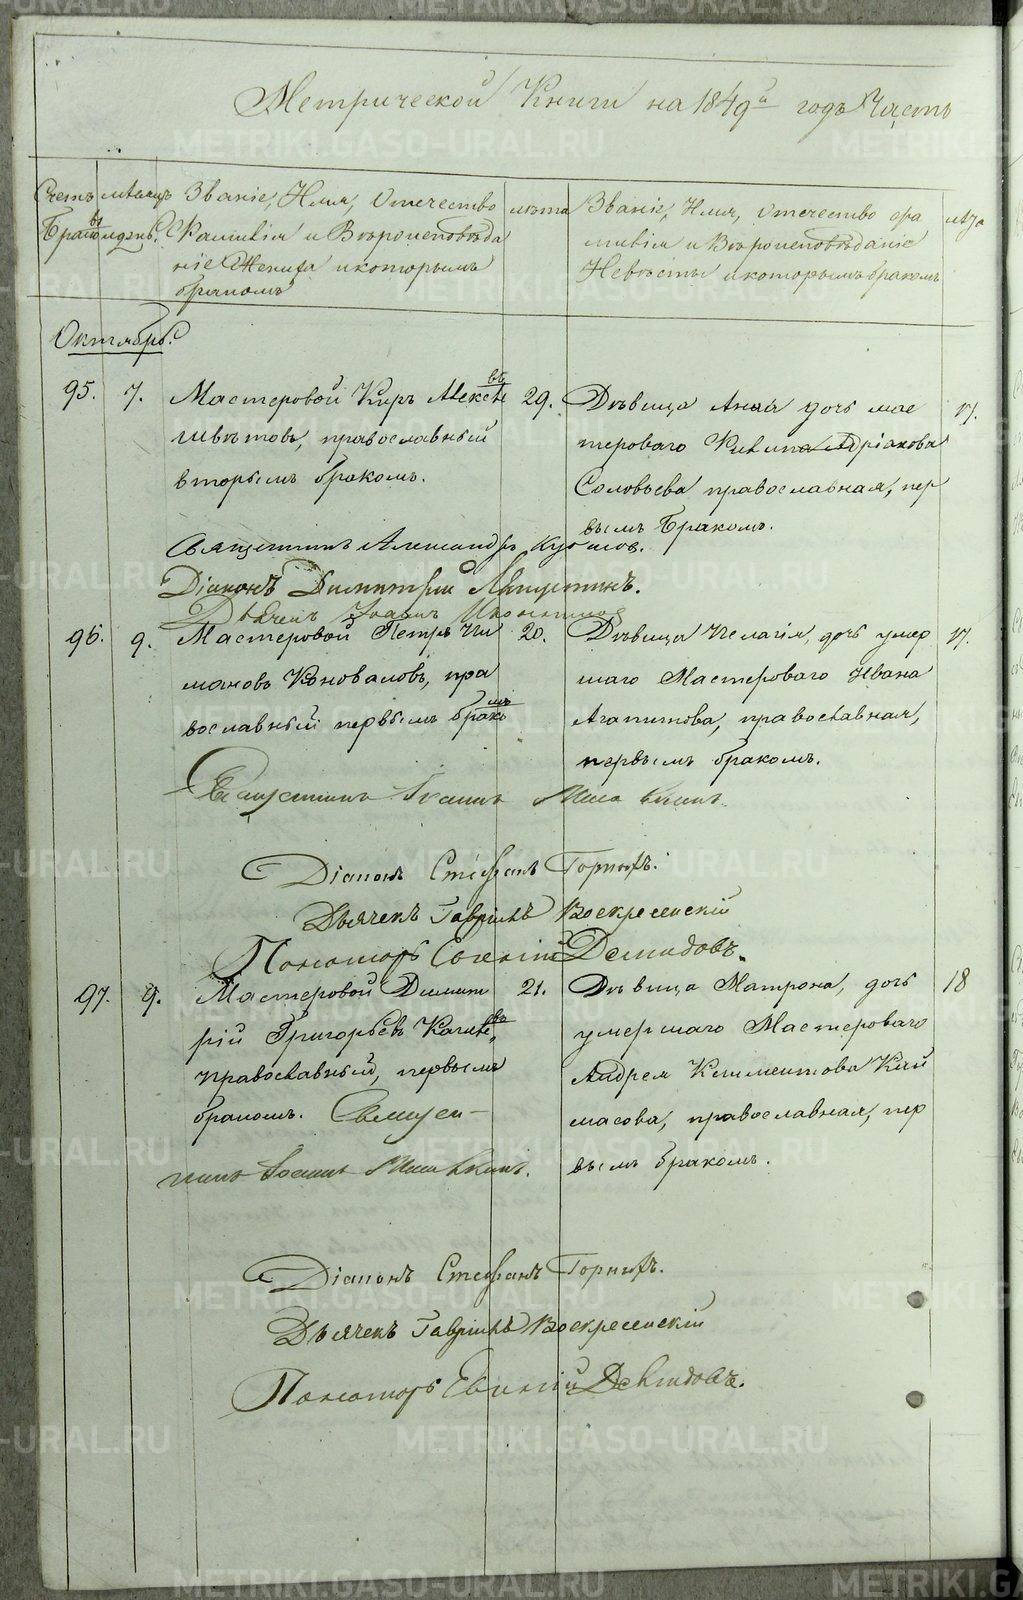 Метрической Книги на 1849й годъ Часть
Счетъ Браковъ
мѣсяцъ и день.
Званіе, Имя, Отчество
Фамилія и Вѣроисповѣда
ніе Жениха и которымъ
бракомъ
лѣта
Званіе, Имя, Отчество фа
милія и Вѣроисповѣданіе
Невѣсты и которымъ бракомъ
лѣта
Октябрь.
95. 7. Мастеровой Киръ
швѣтовъ, православный
вторымъ бракомъ.
29.
Дѣвица Анна дочь мас
тероваго Адріанова
Соловьева православная, пер
вымъ бракомъ.
17.
Священникъ Александръ
Діаконъ Димитрій
Дьячекъ Іоаннъ
96. 9. Мастеровой Петръ Ки
мановъ Коноваловъ, пра
вославный первымъ бракомъ
20.
Дѣвица Пелагія, дочь умер
шаго Мастероваго Ивана
Агапитова, православная,
первымъ бракомъ.
17.
Священникъ Іоаннъ
Діаконъ Стефанъ
Дьячекъ Гавріилъ Воскресенскій
Пономарь Евгеній Демидовъ.
97. 9. Мастеровой Димит
рій Григорьевъ
православный, первымъ
бракомъ. Священ-
никъ Іоаннъ
21.
Дѣвица Матрона, дочь
умершаго Мастероваго
Андрея Климентова Кай
масова, православная, пер
вымъ бракомъ.
18
Діаконъ Стефанъ
Дьячекъ Гавріилъ Воскресенскій
Пономарь Евгеній Демидовъ.
METRIKI.GASO-URAL.RU